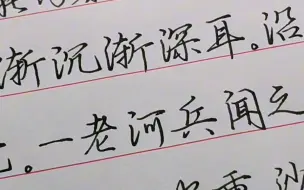 渐沉渐深耳。沿
。一老河兵闻之